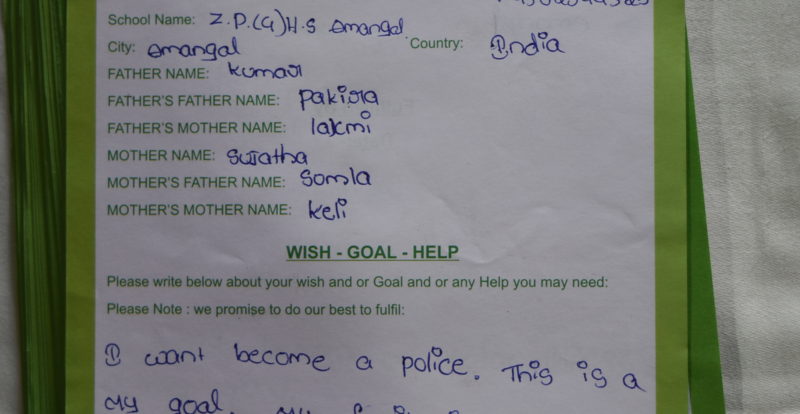 School Name: Z.P.(G)H.S Amangal.
City: Amangal Country: India
FATHER NAME: Kumar
FATHER'S FATHER NAME: Pakira
FATHER'S MOTHER NAME: lakmi
MOTHER NAME: Sujatha
MOTHER'S FATHER NAME: Somla
MOTHER'S MOTHER NAME: Keli
WISH - GOAL - HELP
Please write below about your wish and or Goal and or any Help you may need:
Please Note : we promise to do our best to fulfil:
I want become a police. This is a
my goal.